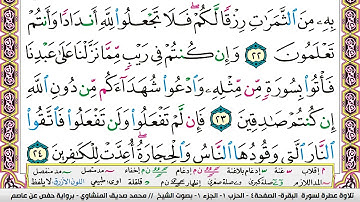 بِهِۦ مِنَ ٱلثَّمَرَٰتِ رِزْقًا لَّكُمْ ۖ فَلَا تَجْعَلُوا۟ لِلَّهِ أَندَادًا وَأَنتُمْ
تَعْلَمُونَ ٢٢ وَإِن كُنتُمْ فِى رَيْبٍ مِّمَّا نَزَّلْنَا عَلَىٰ عَبْدِنَا
فَأْتُوا۟ بِسُورَةٍ مِّن مِّثْلِهِۦ وَٱدْعُوا۟ شُهَدَآءَكُم مِّن دُونِ ٱللَّهِ
إِن كُنتُمْ صَٰدِقِينَ ٢٣ فَإِن لَّمْ تَفْعَلُوا۟ وَلَن تَفْعَلُوا۟ فَٱتَّقُوا۟
ٱلنَّارَ ٱلَّتِى وَقُودُهَا ٱلنَّاسُ وَٱلْحِجَارَةُ ۖ أُعِدَّتْ لِلْكَٰفِرِينَ ٢٤
تلاوة عطرة سورة البقرة- الصفحة 4 - الحزب 1 - الجزء 1 - بصوت الشيخ // محمد صديق المنشاوي - برواية حفص عن عاصم